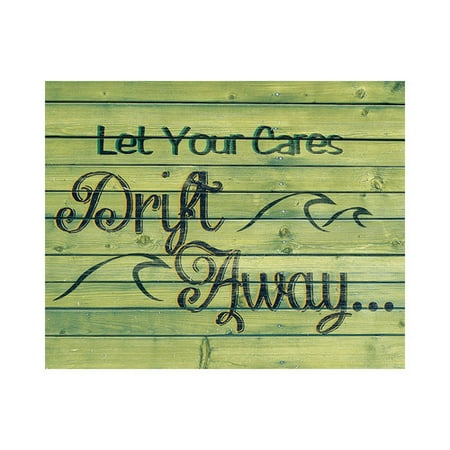 Let Your Cares
Drift
Away...